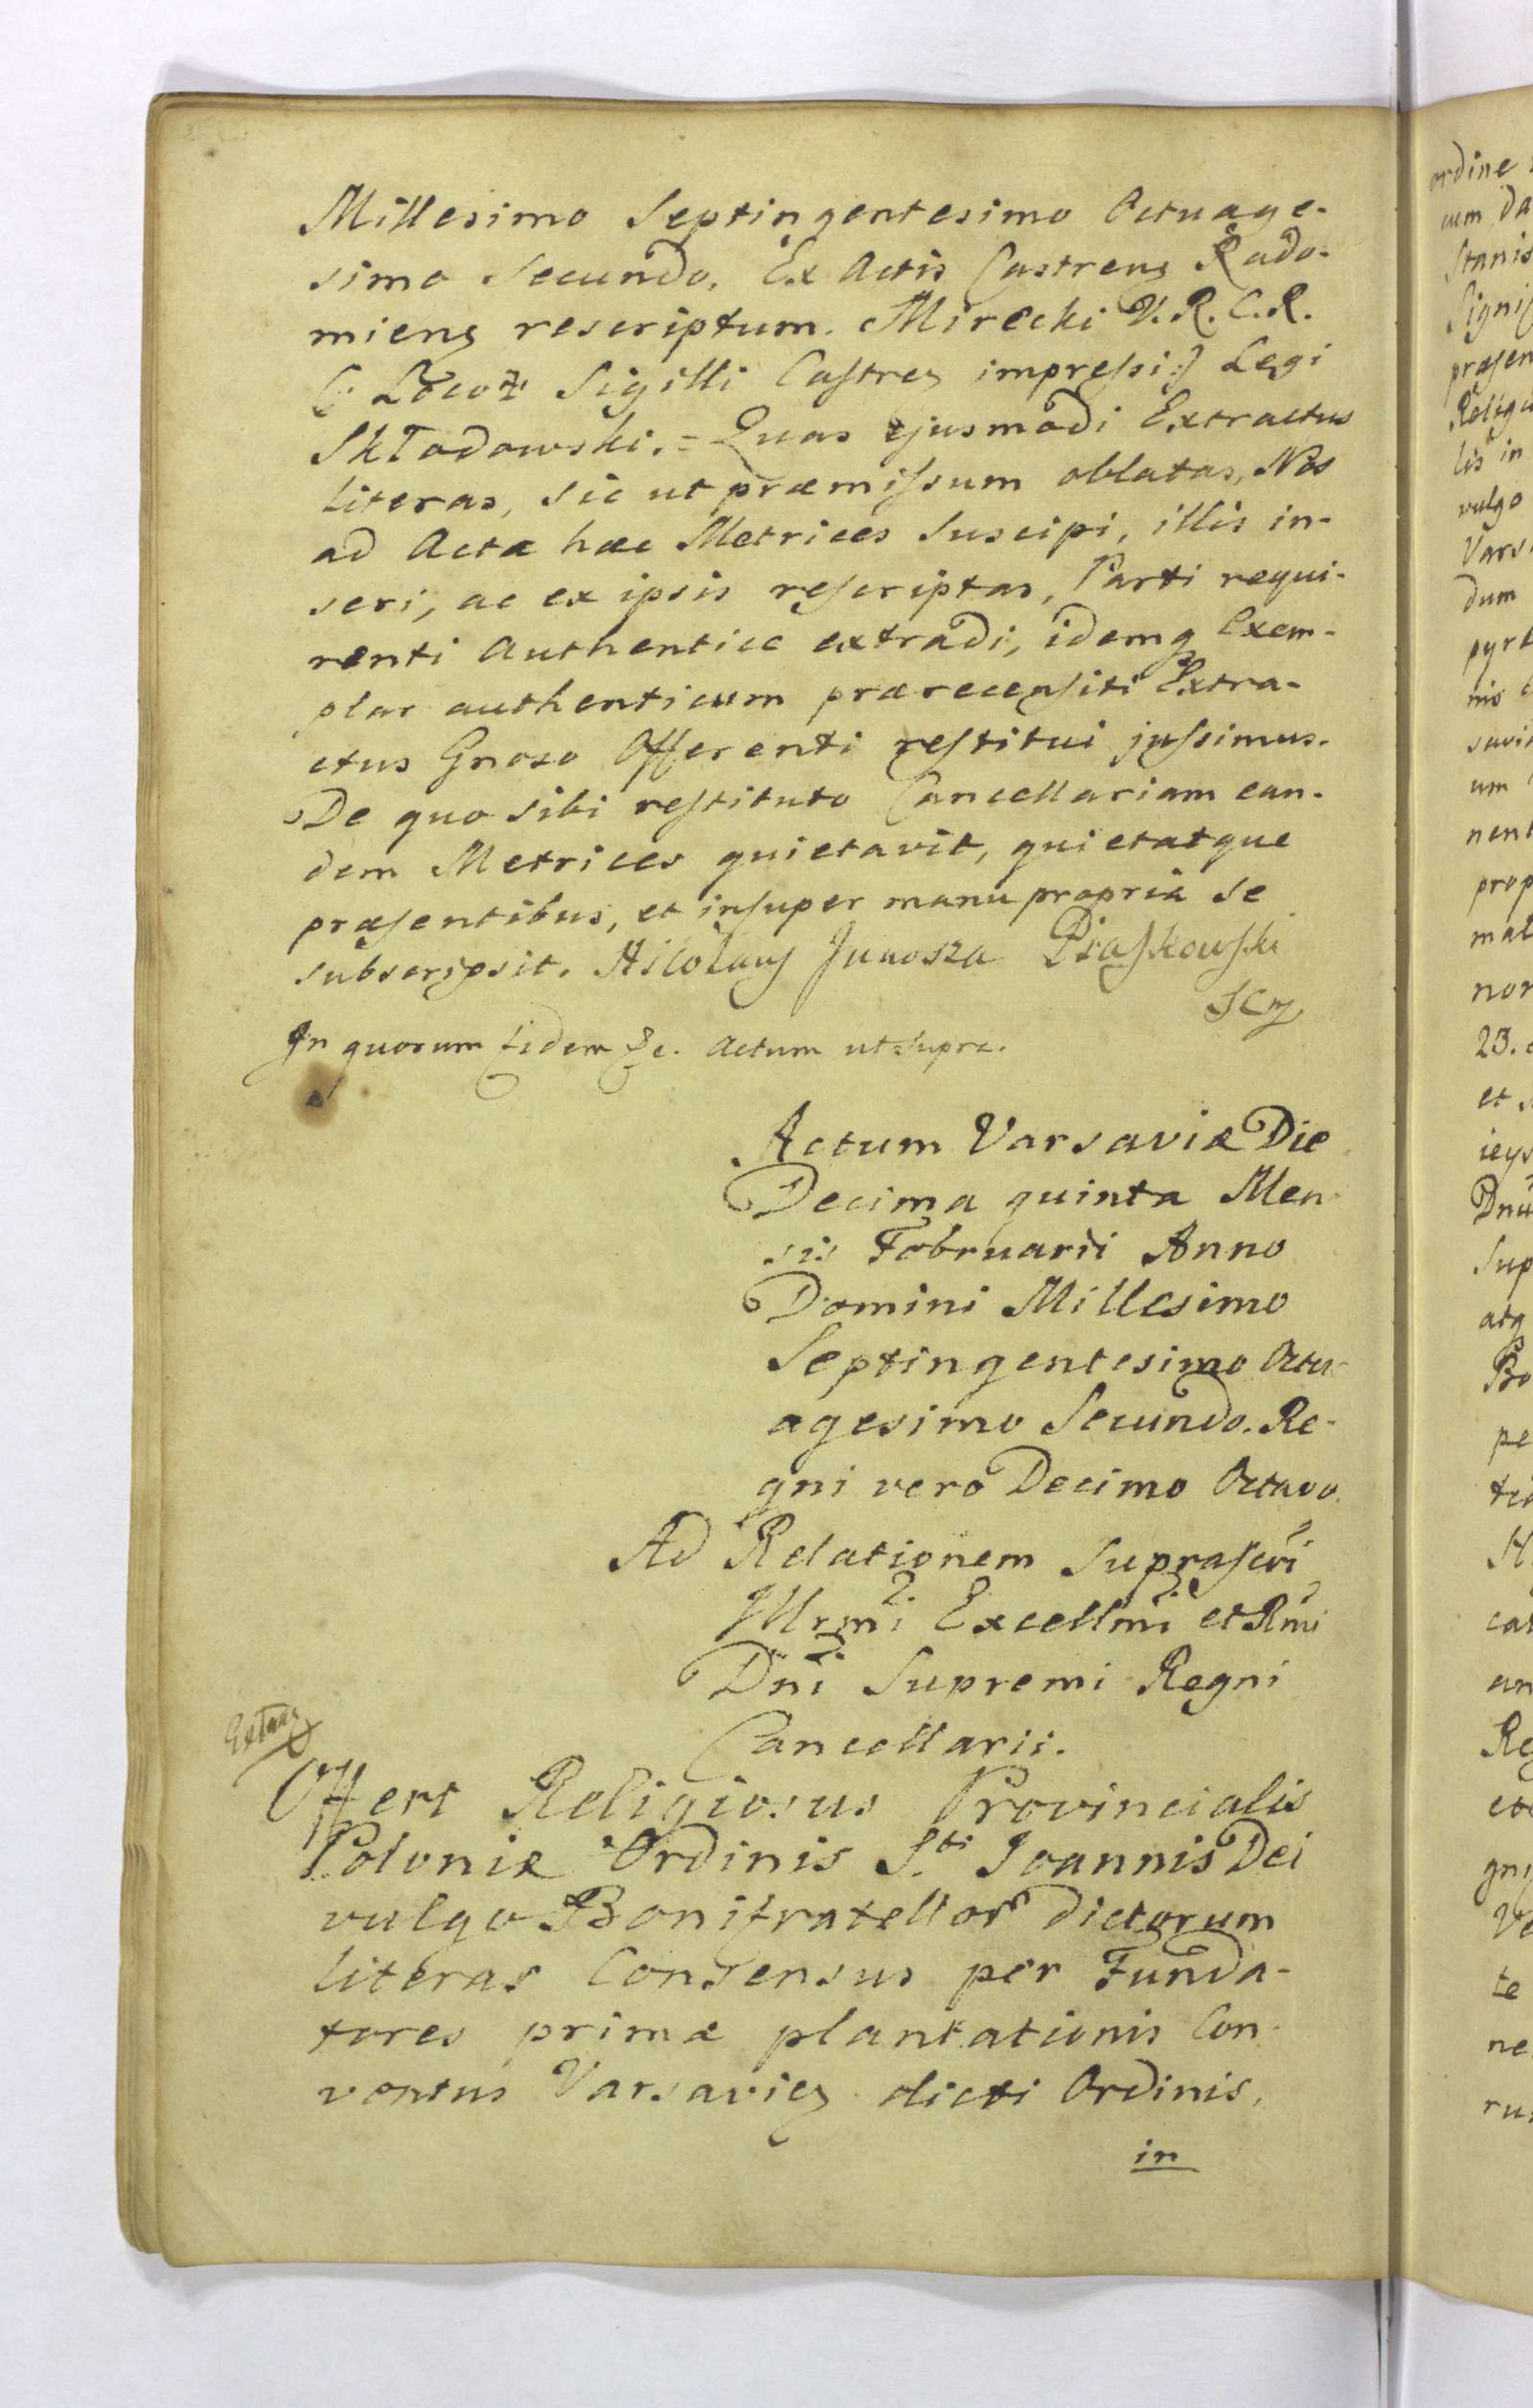 Millesimo Septingentesimo Octuage-
simo Secundo. Ex Actis Castrens Rado-
miens rescriptum. Mirecki V. R. C. R.
(: Locus Sigilli Castren impressi :) Legi
Skłodowski. = Quas ejusmodi Extractus
literas, sic ut præmissum oblatas, Nos
ad Acta hæc Metrices Suscipi, illis in-
seri, ac ex ipsis rescriptas, Parti requi-
renti Authentice extradi, idemq Exem-
plar authenticum prærecensiti Extra-
ctus Gnoso Offerenti restitui jussimus.
De quo sibi restituto Cancellariam ean-
dem Metrices quietavit, quietatque
præsentibus, et insuper manu propria se
subscripsit. Nicolaus Junosza Piaskowski
In quorum fidem &c. Actum ut supra.
Actum Varsaviæ Die
Decima quinta Men-
sis Februarii Anno
Domini Millesimo
Septingentesimo Octu-
agesimo Secundo. Re-
gni vero Decimo Octavo.
Ad Relationem Suprascri
Illrmi Excellmi et Rmi
Dni Supremi Regni
Cancellarii.
Offert Religiosus Provincialis
Poloniæ Ordinis S.ti Joannis Dei
vulgo Bonifratellor dictorum
literas Consensus per Funda-
tores primæ plantationis Con-
ventus Varsavien dicti Ordinis,
in
ordine
cum da
Stanis
Signif
præsen
Religi
lis in
vulgo
Vars
dum
nis
um
nent
prop
mat
nor
23.
et
Dnu
Sup
atq
Bo
pe
an
Re
te
ne